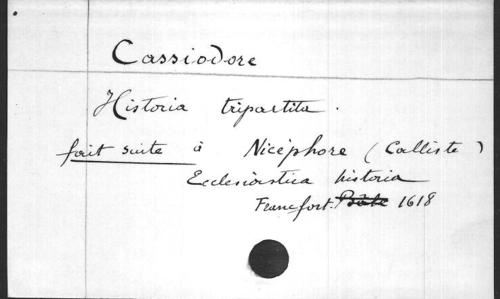 Cassiodore
Historia tripartita.
fait suite à Nicéphore (Calliste)
Ecclesiastica historia
Francfort. 1618